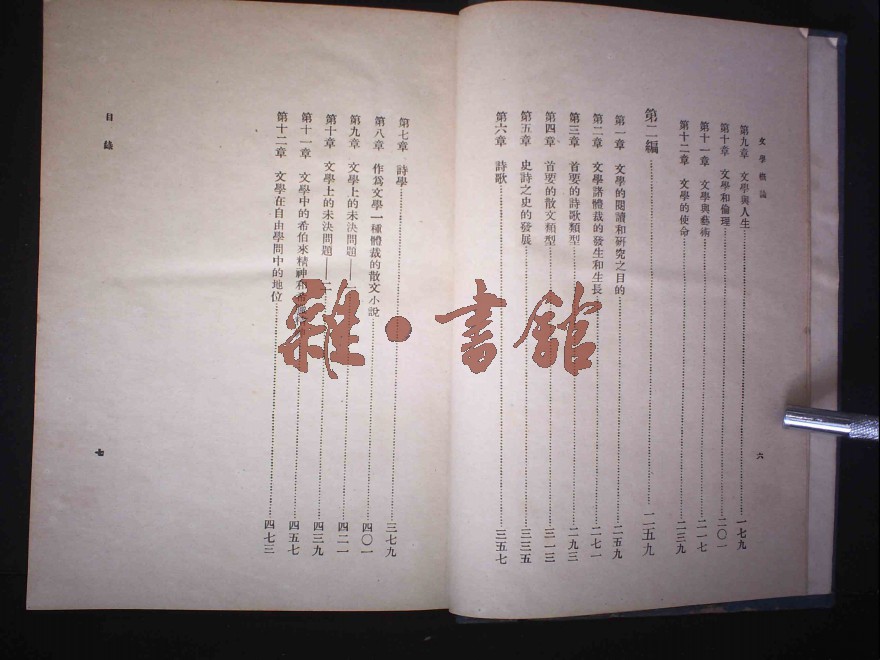 文學概論
第九章　文學與人生……一七九
第十章　文學和倫理……二〇一
第十一章　文學與藝術……二一七
第十二章　文學的使命……二三九
第二編……二五九
第一章　文學的閱讀和研究之目的……二五九
第二章　文學諸體裁的發生和生長……二七一
第三章　首要的詩歌類型……二九三
第四章　首要的散文類型……三一三
第五章　史詩之史的發展……三三五
第六章　詩歌……三五七
六
目錄
第七章　詩學……三七九
第八章　作爲文學一種體裁的散文小說……四〇一
第九章　文學上的未決問題——……四二一
第十章　文學上的未決問題——二……四三九
第十一章　文學中的希伯來精神和希……四五七
第十二章　文學在自由學問中的地位……四七三
七
雜·書館